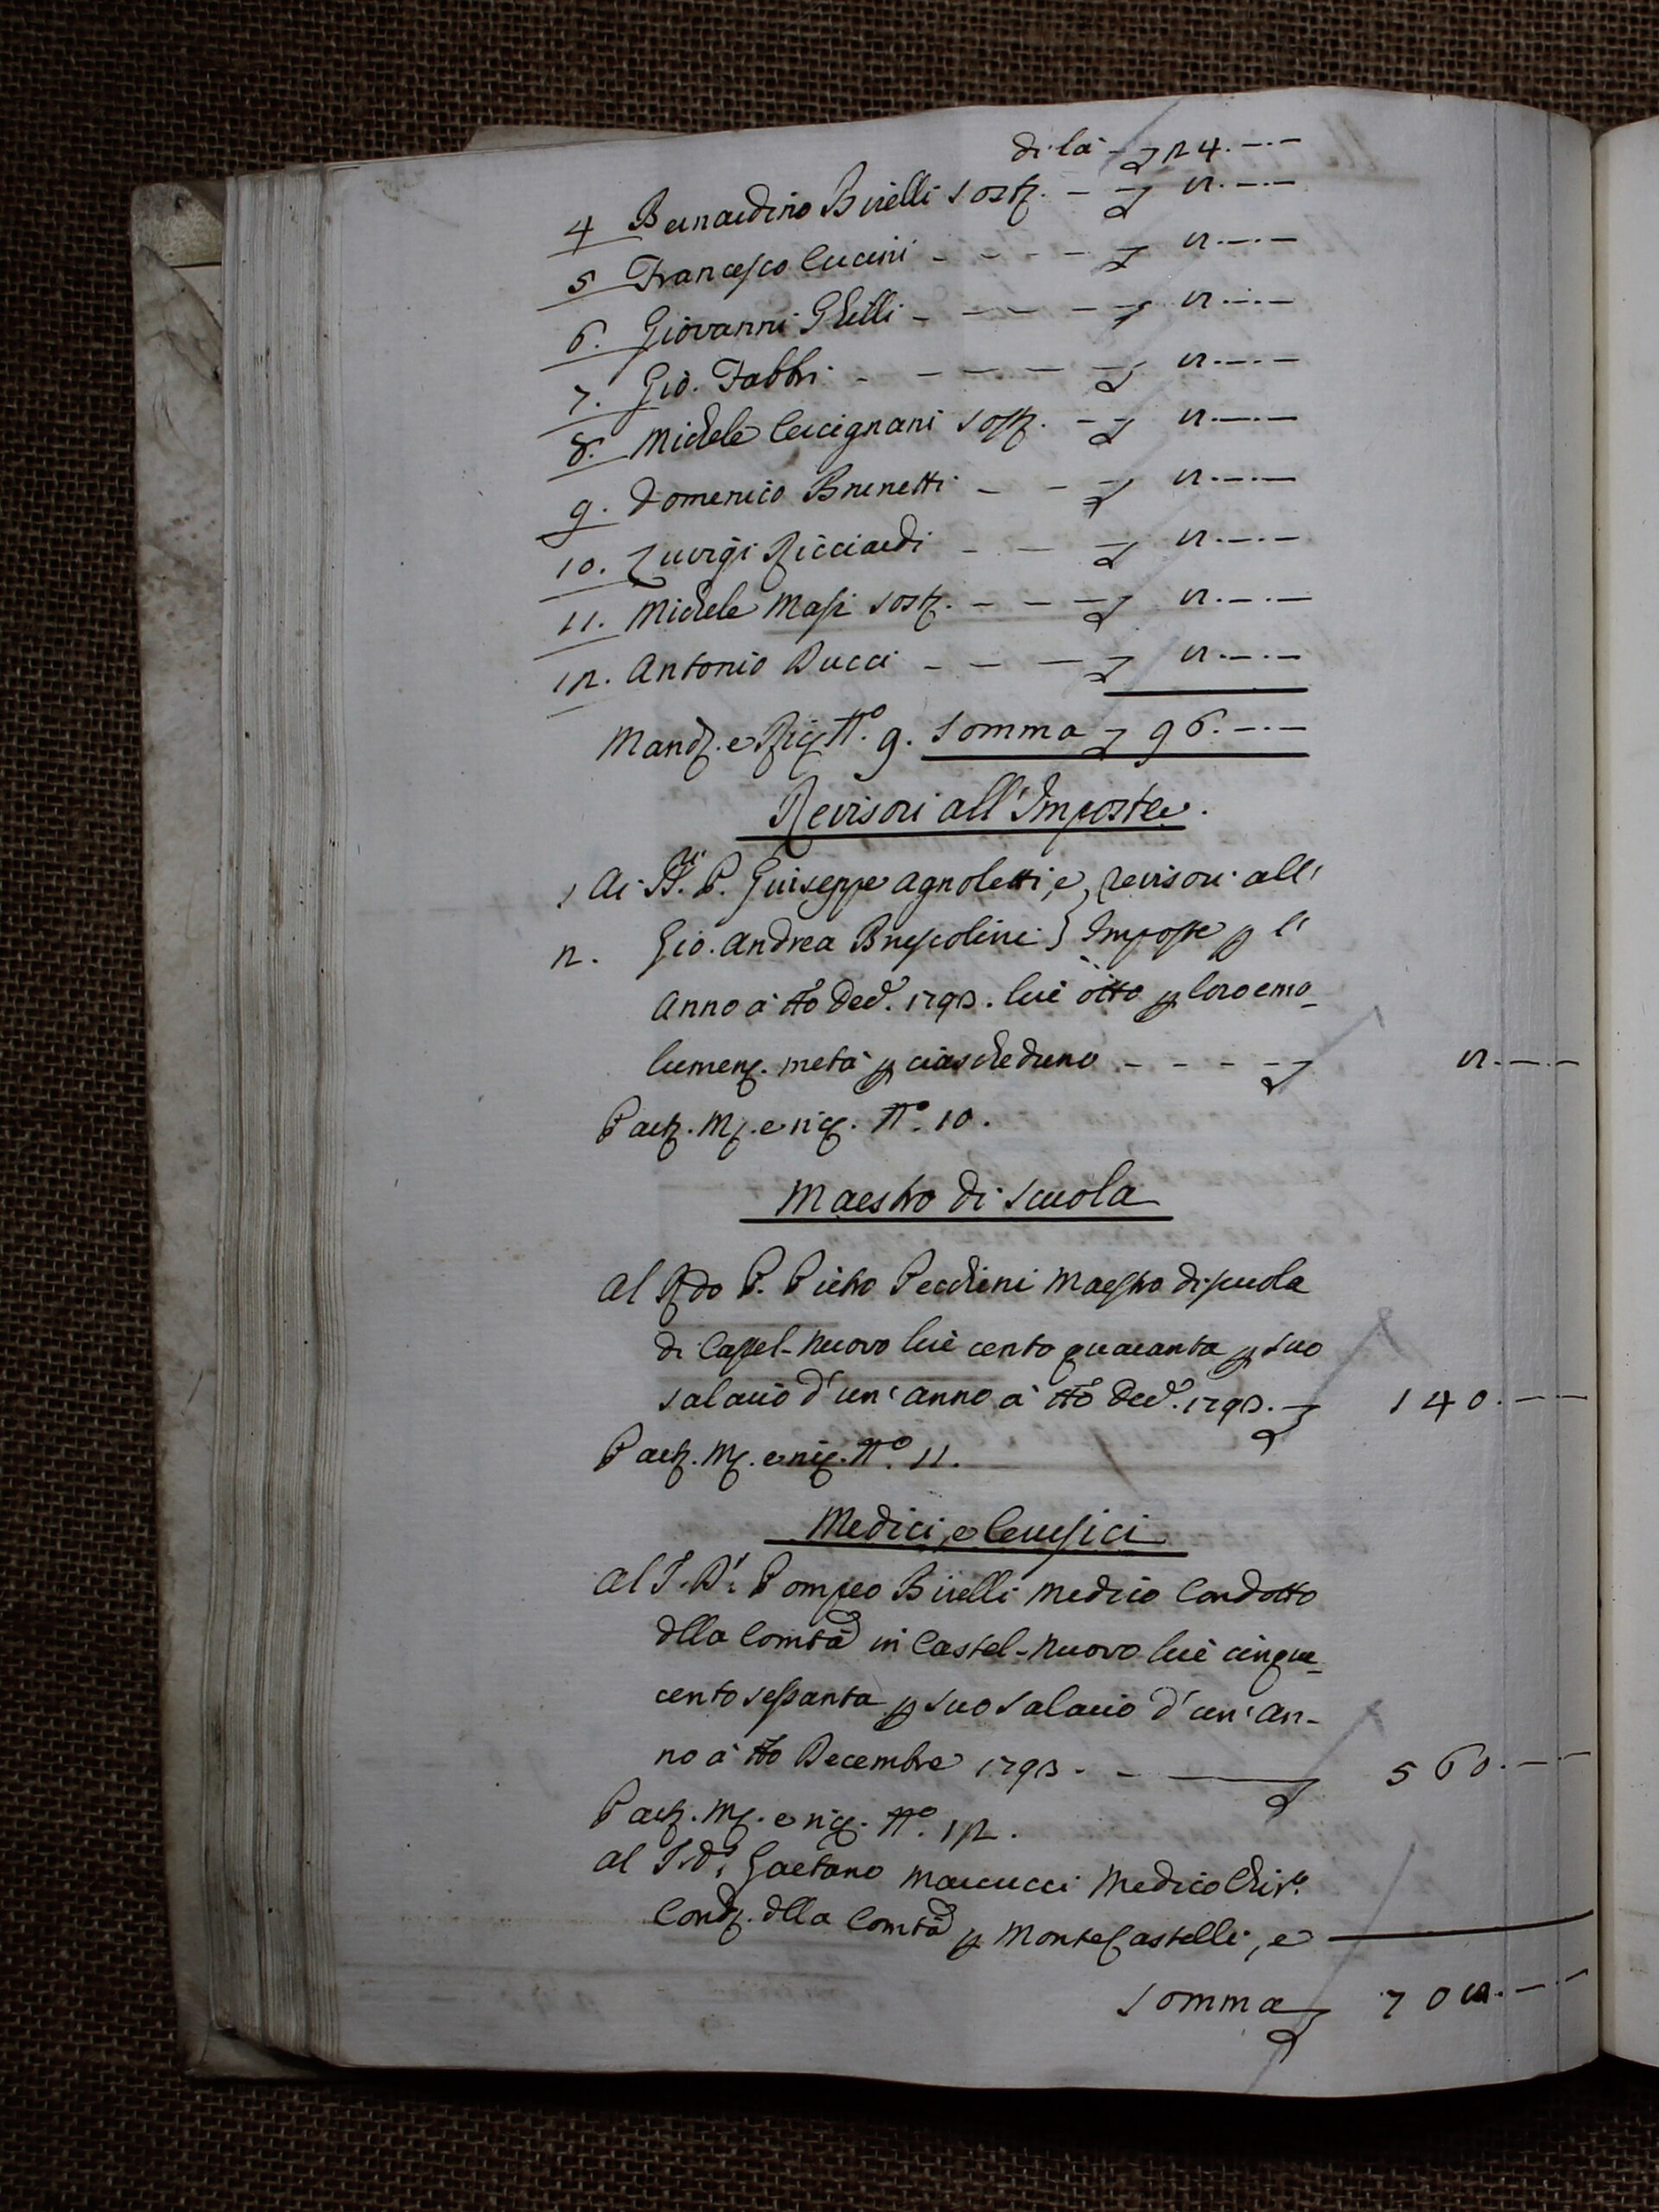 di là £ 24.—.—
4 Bernardino Birelli sostº. - £ 8.—.—
5 Francesco Cucini - - - - £ 8.—.—
6. Giovanni Ghilli - - - - £ 8.—.—
7. Gio. Fabbri - - - - - £ 8.—.—
8. Michele Cercignani sostº. - £ 8.—.—
9. Domenico Brunetti - - £ 8.—.—
10. Luigi Ricciardi - - £ 8.—.—
11. Michele Masi sostº. - - - £ 8.—.—
12. Antonio Ducci - - - £ 8.—.—
Mandº. e Ricº. Nº. 9. Somma £ 96.—.—
Revisori all'Imposte.
1 Ai SS.ri P. Giuseppe Agnoletti, e } Revisori all'
2. Gio. Andrea Bruscolini } Imposte p l'
Anno a tto Dec.e 1793. lire otto p loro emo-
lumenº. metà p ciascheduno - - - - £ 8.—.—
Partº. Mº. e ricº. Nº. 10.
Maestro di Scuola
Al Rdo P. Pietro Pecchioni Maestro di scuola
di Castel-nuovo lire cento quaranta p suo
salario d'un'anno a tto Dec.e 1793. - £ 140.—.—
Partº. Mº. e ricº. Nº. 11.
Medici, e Cerusici
Al S. D.r Pompeo Birelli Medico Condotto
dlla Comtà in Castel-nuovo lire cinque-
cento sessanta p suo salario d'un'an-
no a tto Decembre 1793. - — £ 560.—.—
Partº. Mº. e ricº. Nº. 12.
Al S. D.r Gaetano Marcucci Medico Chir.o
Condº. dlla Comtà p MonteCastelli, e
Somma £ 708.—.—